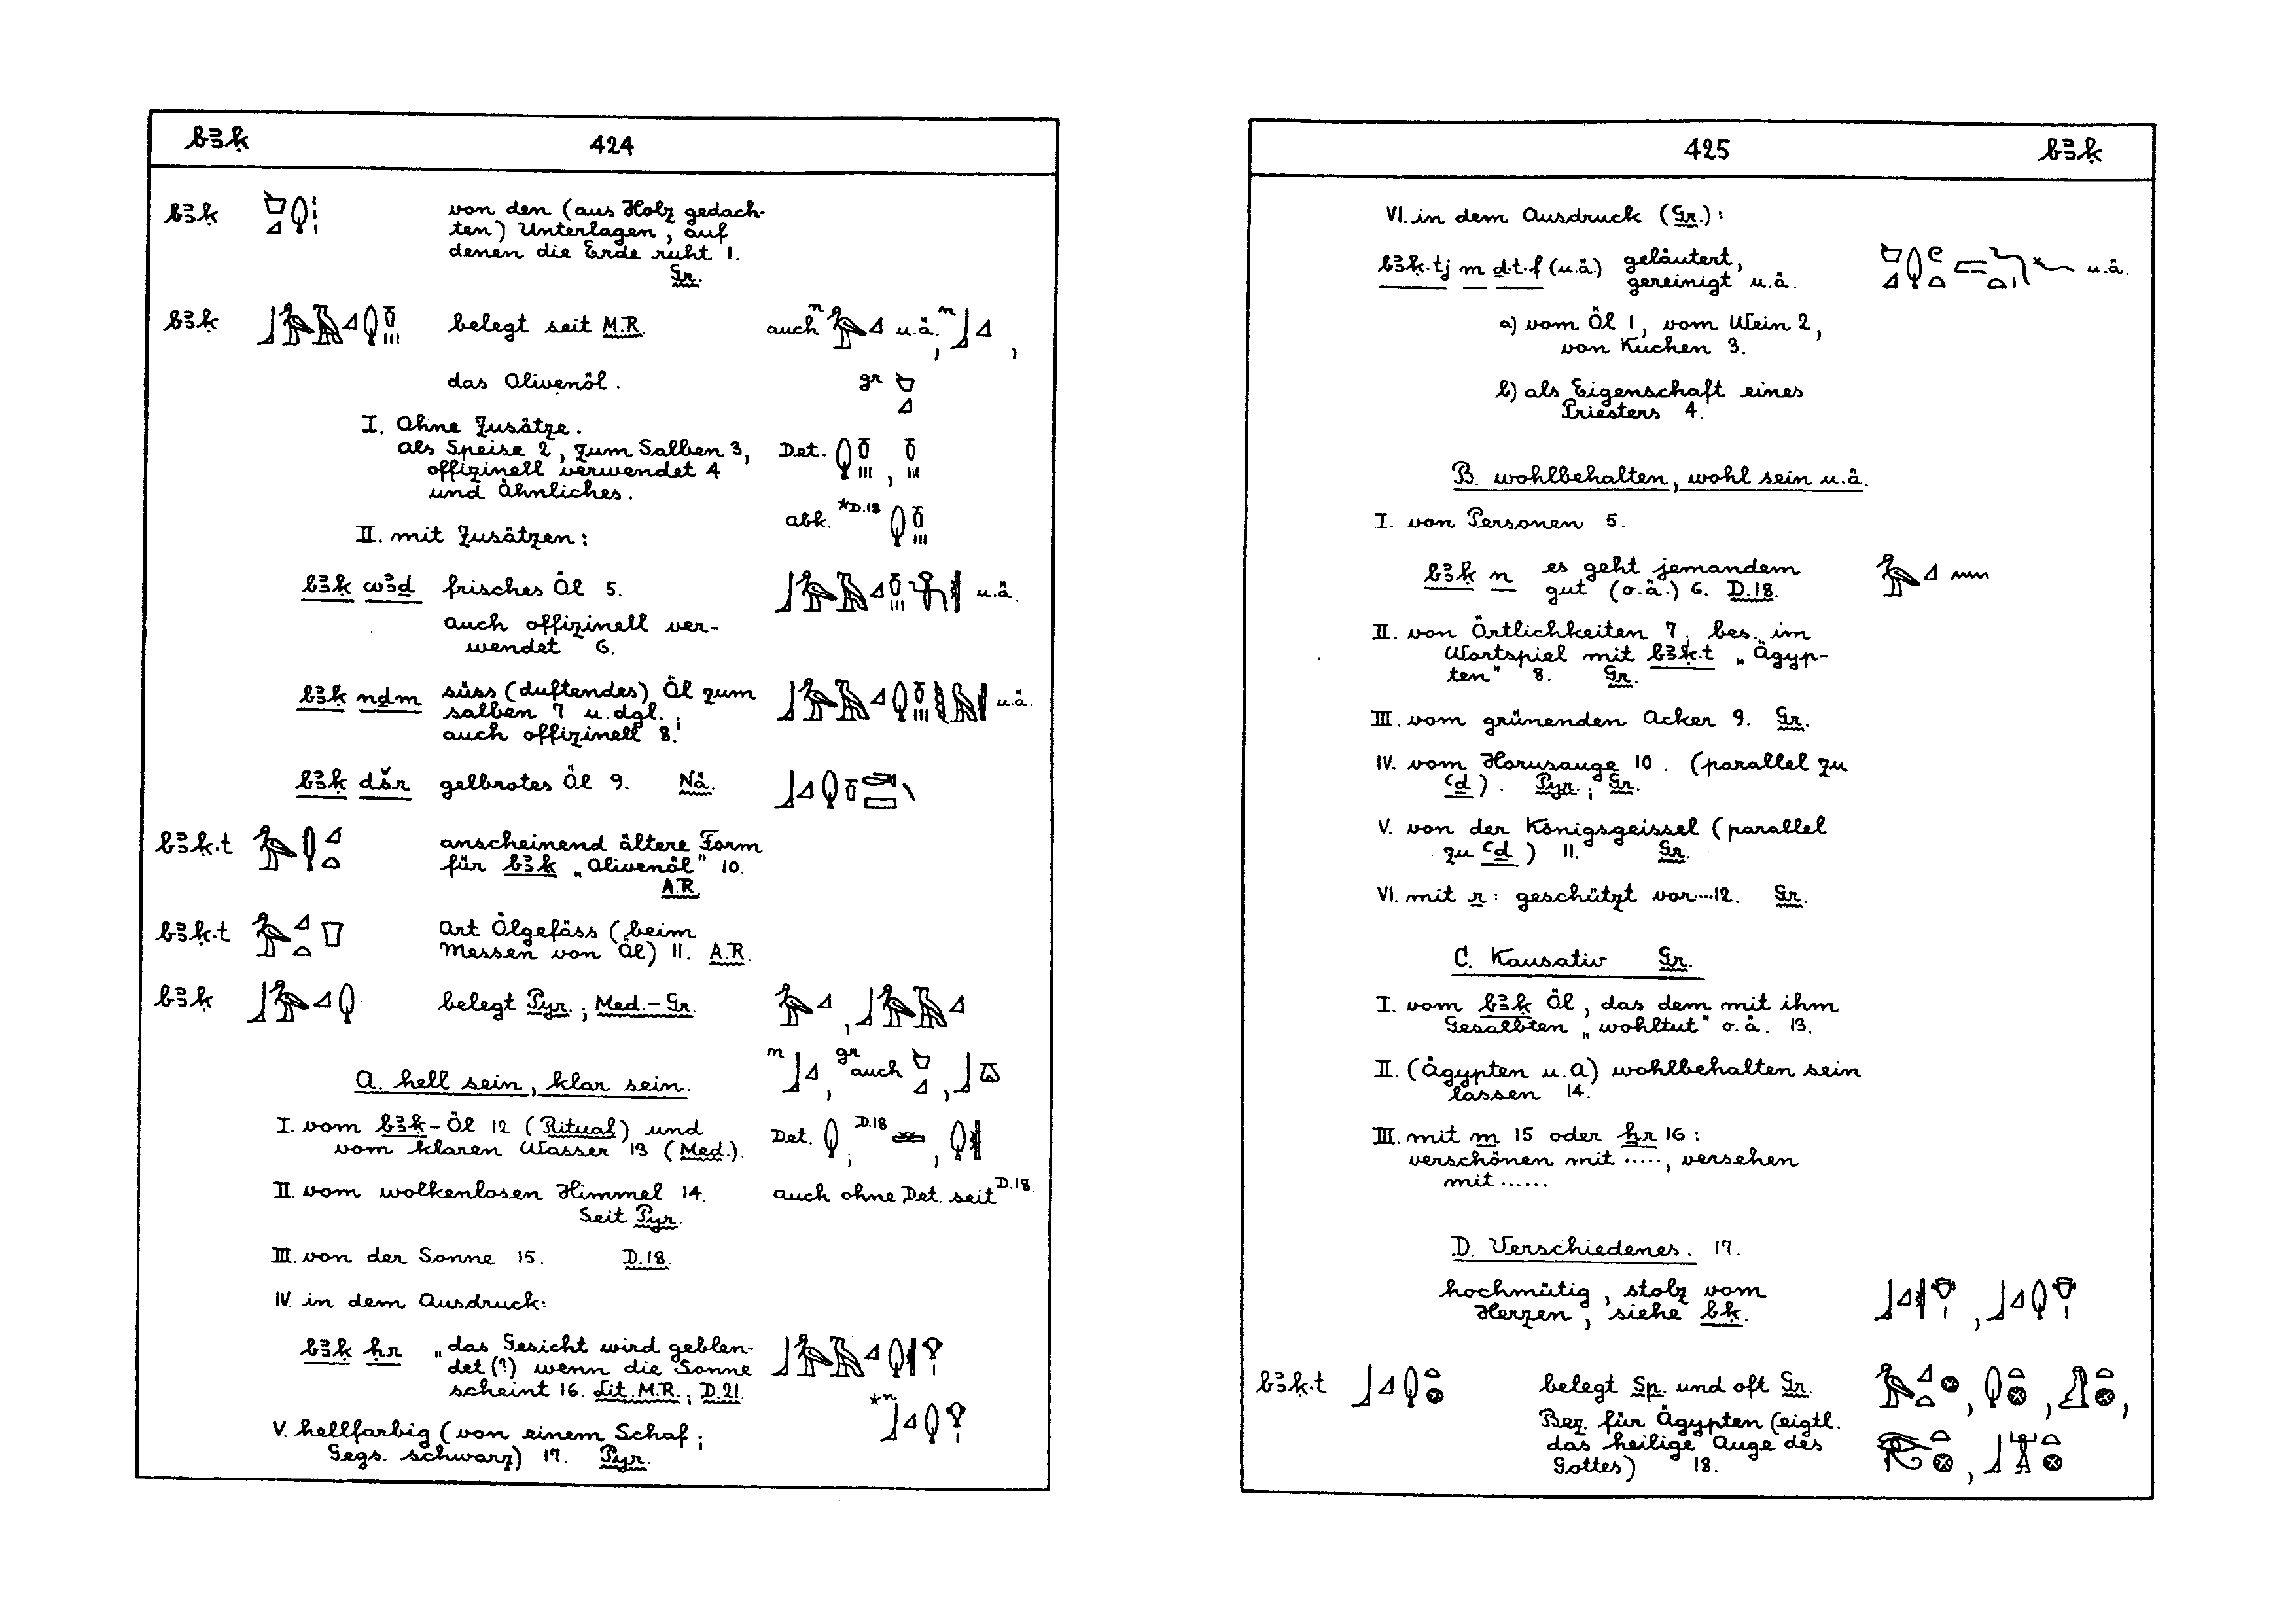 bꜣḳ 424
bꜣḳ von den (aus Holz gedach-
ten) Unterlagen, auf
denen die Erde ruht 1.
Gr.
bꜣḳ belegt seit M.R. auch n u.ä., n ,
das Olivenöl. gr
I. Ohne Zusätze.
als Speise 2, zum Salben 3, Det. ,
offizinell verwendet 4
und Ähnliches.
abk. *D.18
II. mit Zusätzen:
bꜣḳ wꜣḏ frisches Öl 5. u.ä.
auch offizinell ver-
wendet 6.
bꜣḳ nḏm süss (duftendes) Öl zum u.ä.
salben 7 u.dgl.;
auch offizinell 8.
bꜣḳ dšr gelbrotes Öl 9. Nä.
bꜣḳ.t anscheinend ältere Form
für bꜣḳ „Olivenöl" 10.
A.R.
bꜣḳ.t Art Ölgefäss (beim
Messen von Öl) 11. A.R.
bꜣḳ belegt Pyr.; Med.-Gr. ,
n , gr auch ,
A. hell sein, klar sein.
I. vom bꜣḳ-Öl 12 (Ritual) und Det. ; D.18 ,
vom klaren Wasser 13 (Med.)
II. vom wolkenlosen Himmel 14. auch ohne Det. seit D.18.
Seit Pyr.
III. von der Sonne 15. D.18.
IV. in dem Ausdruck:
bꜣḳ ḥr „das Gesicht wird geblen-
det (?) wenn die Sonne
scheint 16. Lit. M.R.; D.21.
*n
V. hellfarbig (von einem Schaf;
Gegs. schwarz) 17. Pyr.
425 bꜣḳ
VI. in dem Ausdruck (Gr.):
bꜣḳ.tj m ḏ.t.f (u.ä.) geläutert, u.ä.
gereinigt u.ä.
a) vom Öl 1, vom Wein 2,
von Kuchen 3.
b) als Eigenschaft eines
Priesters 4.
B. wohlbehalten, wohl sein u.ä.
I. von Personen 5.
bꜣḳ n es geht jemandem
gut (o.ä.) 6. D.18.
II. von Örtlichkeiten 7; bes. im
Wortspiel mit bꜣḳ.t „Ägyp-
ten" 8. Gr.
III. vom grünenden Acker 9. Gr.
IV. vom Horusauge 10. (parallel zu
ꜥḏ). Pyr.; Gr.
V. von der Königsgeissel (parallel
zu ꜥḏ) 11. Gr.
VI. mit r: geschützt vor....12. Gr.
C. Kausativ Gr.
I. vom bꜣḳ Öl, das dem mit ihm
Gesalbten „wohltut" o.ä. 13.
II. (Ägypten u.a) wohlbehalten sein
lassen 14.
III. mit m 15 oder ẖr 16:
verschönen mit ....., versehen
mit ......
D. Verschiedenes. 17.
hochmütig, stolz vom
Herzen, siehe bḳ. ,
bꜣḳ.t belegt Sp. und oft Gr. , , ,
Bez. für Ägypten (eigtl.
das heilige Auge des
Gottes) 18. ,